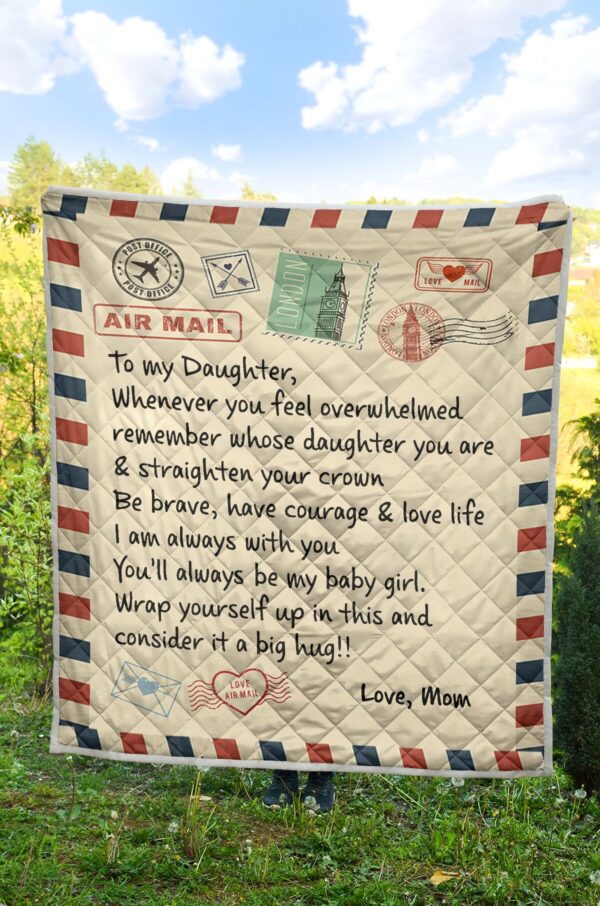 POST OFFICE
POST OFFICE
LONDON
LOVE MAIL
AIR MAIL
LONDON
LONDON
To my Daughter,
Whenever you feel overwhelmed
remember whose daughter you are
& straighten your crown
Be brave, have courage & love life
I am always with you
You'll always be my baby girl.
Wrap yourself up in this and
consider it a big hug!!
LOVE
AIR MAIL
Love, Mom